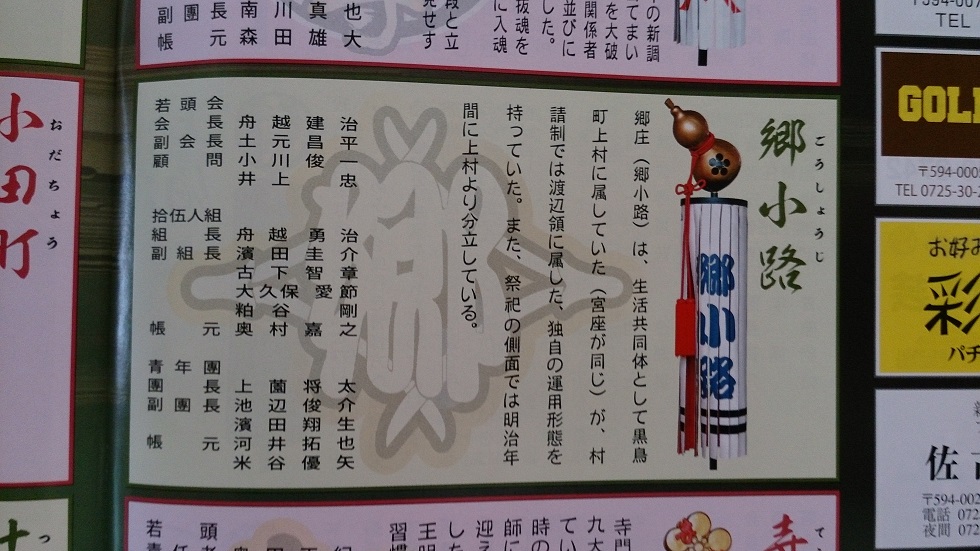 の新調
てまい
を大破
関係者
並びに
した。
抜魂を
に入魂
段と立
見せす
副團長 南川真也
帳元 森田雄大
郷小路
ごうしょうじ
郷小路
郷庄（郷小路）は、生活共同体として黒鳥
町上村に属していた（宮座が同じ）が、村
請制では渡辺領に属した、独自の運用形態を
持っていた。また、祭祀の側面では明治年
間に上村より分立している。
若頭会
会長 舟越建治
副会長 土元昌平
顧問 小川俊一
井上忠
拾伍人組
組長 舟越勇治
副組長 濱田圭介
古下智章
大久保愛節
粕谷剛
帳元 奥村嘉之
青年團
團長 上薗将太
副團長 池辺俊介
濱田翔生
帳元 河井拓也
米谷優矢
小田町
おだちょう
寺門
九大
てい
時の
師に
迎え
した
王明
習慣
若頭
寺
て
TEL
GOL
〒594-000
TEL 0725-30-
お好み
彩
パチ
佐
〒594-002
電話 072
夜間 072